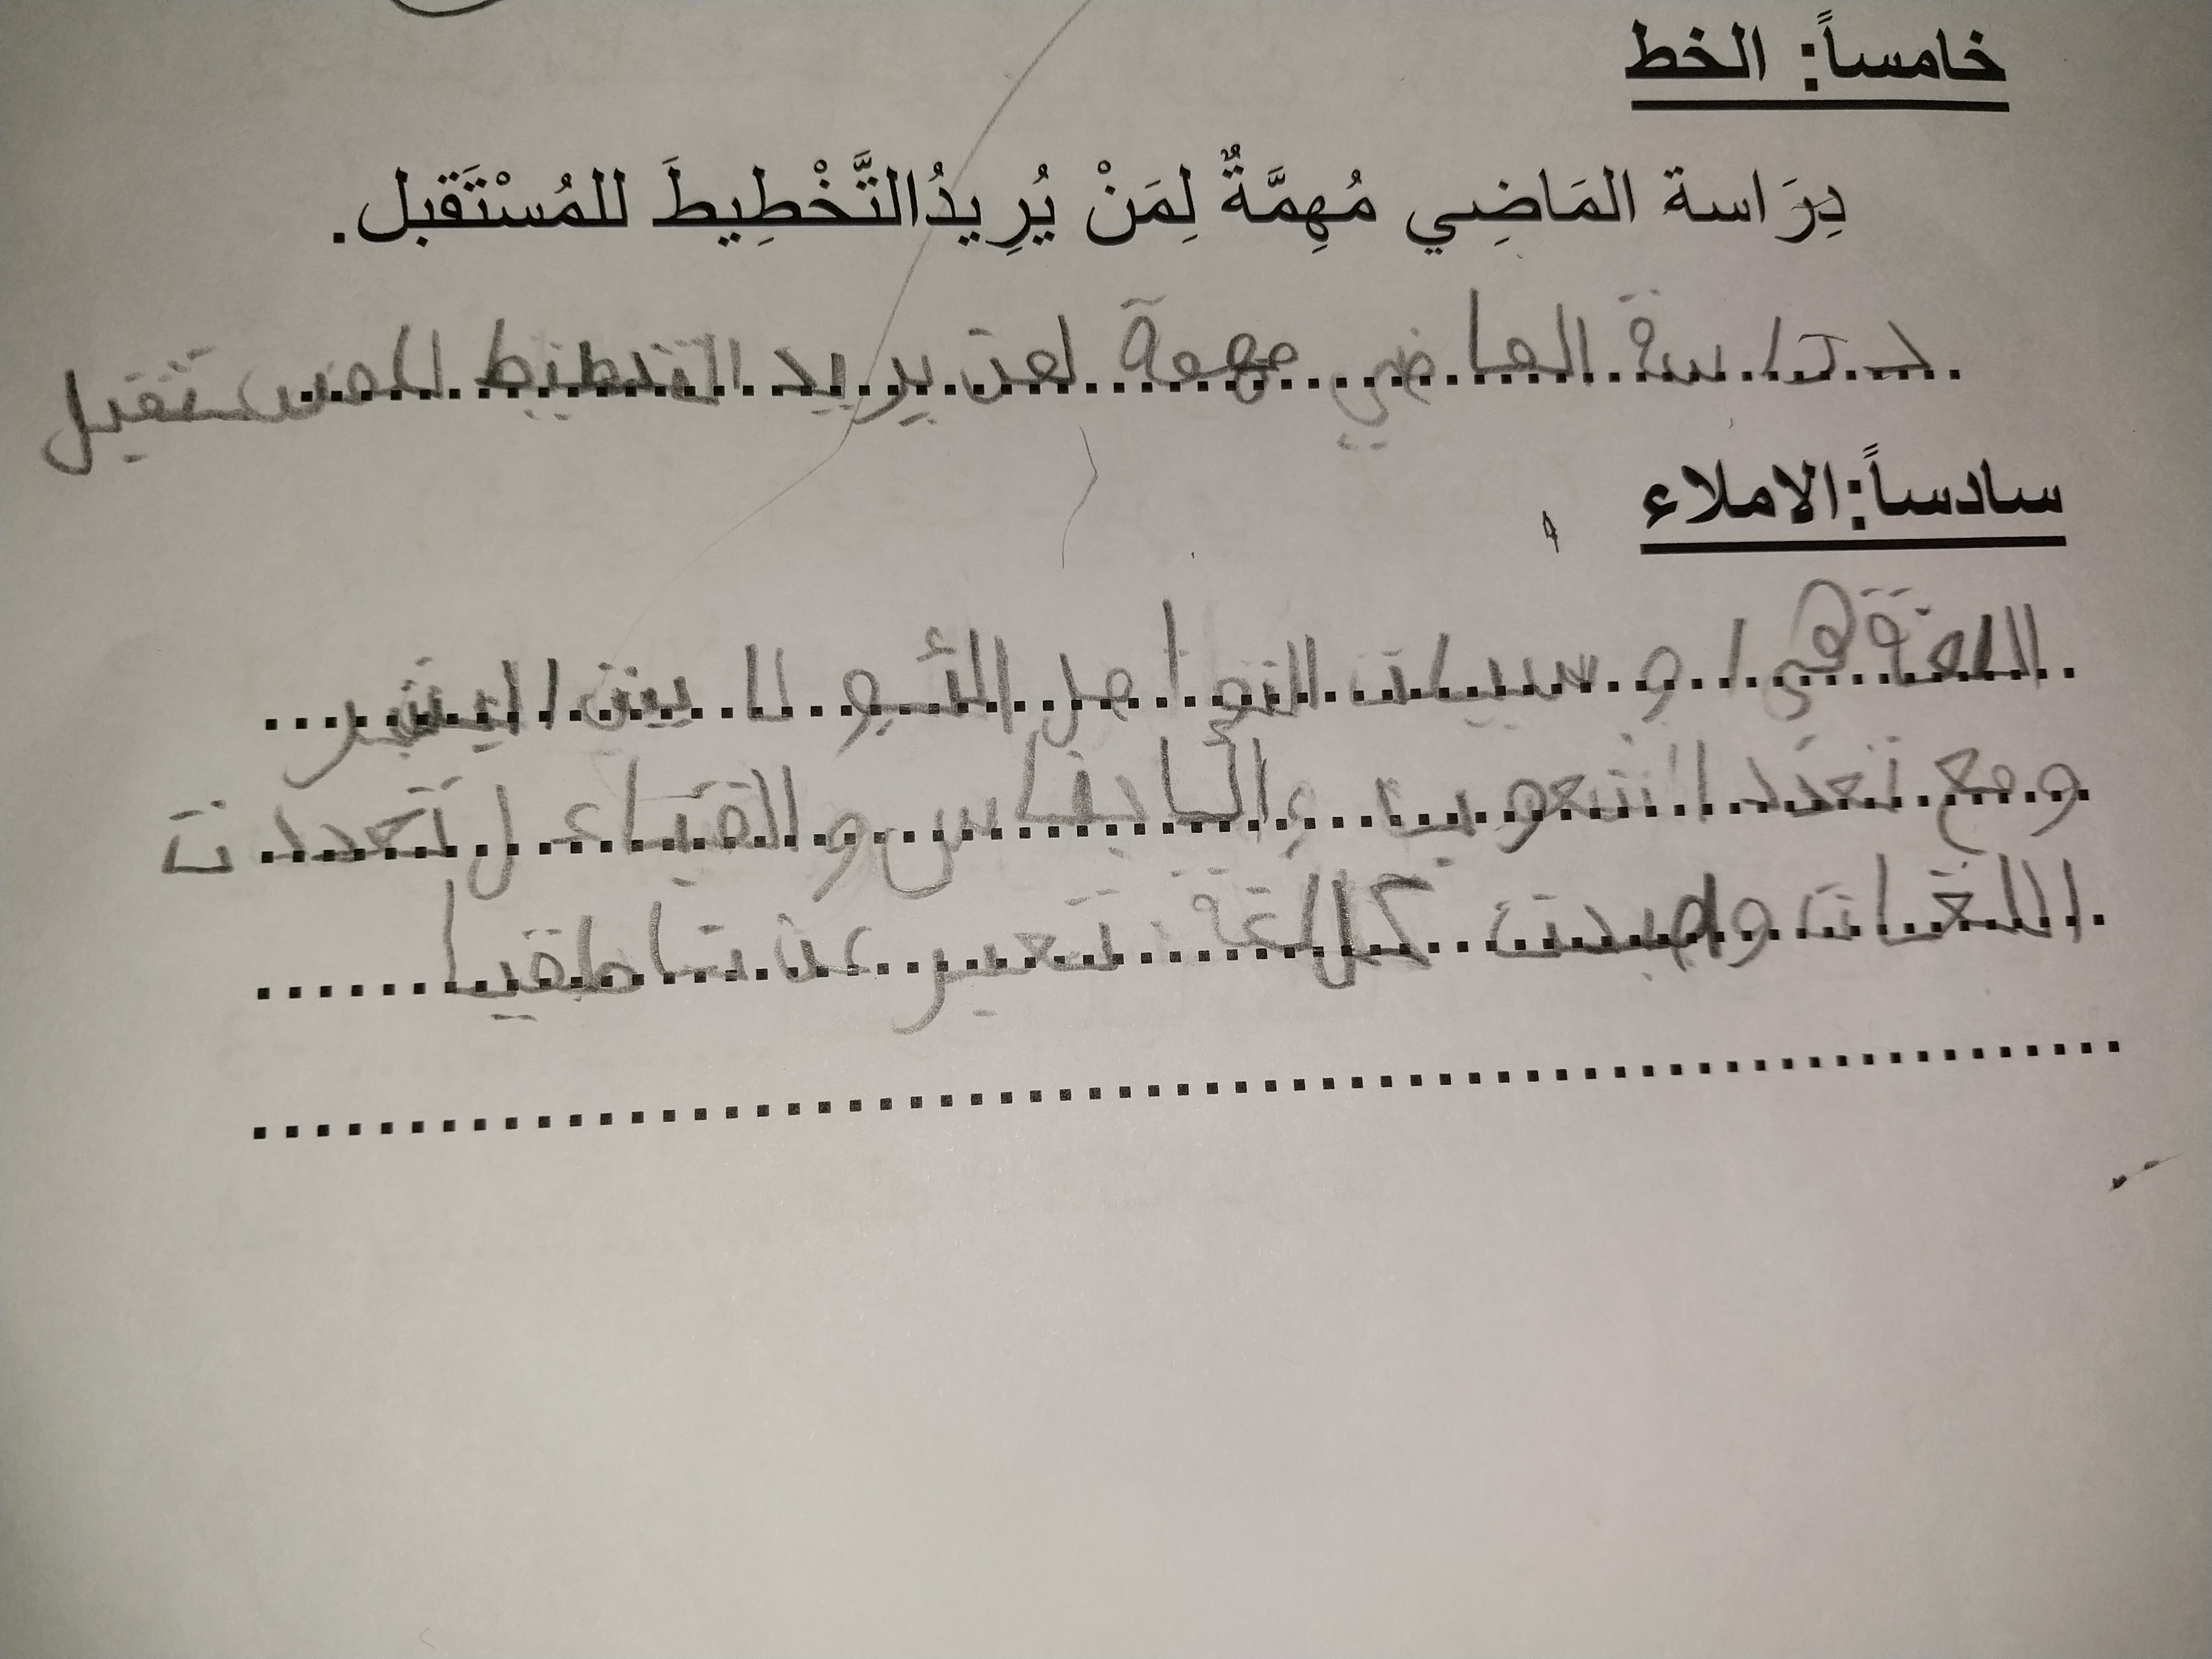 خامساً: الخط
دِرَاسة المَاضِي مُهِمَّةٌ لِمَنْ يُرِيدُ التَّخْطِيطَ للمُسْتَقبل.
دراسة الماضي مهمة لمن يريد التخطيط للمستقبل
سادساً:الاملاء
اللغة هي ا وسيلت التواصل الأسو لا بين البشر
ومع تعدد الشعوب والقباءل تعددت
اللغات واصبحت كل لغة تعبر عن